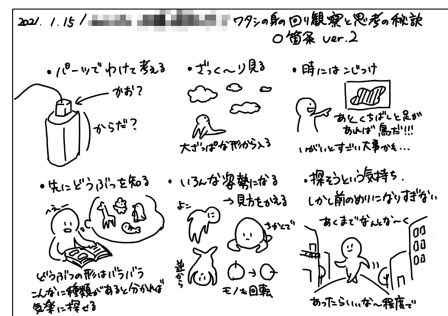 2021. 1. 15 /
ワタシの身の回り観察と思考の秘訣
〇箇条 ver.2
・パーツでわけて考える
かお？
からだ？
・ざっく〜り見る
大ざっぱな形から入る
・時にはこじつけ
あとくちばしと足が
あれば鳥だ!!!
いがいとすごい大事かも…
・先にどうぶつを知る
へぇ〜
どうぶつの形はバラバラ
こんなに種類があると分かれば
気楽に探せる
・いろんな姿勢になる
→見方をかえる
よこ
さかとで
逆から
モノを回転
・探そうという気持ち.
しかし前のめりになりすぎない
あくまでなんとな〜く
あったらいいな〜程度で